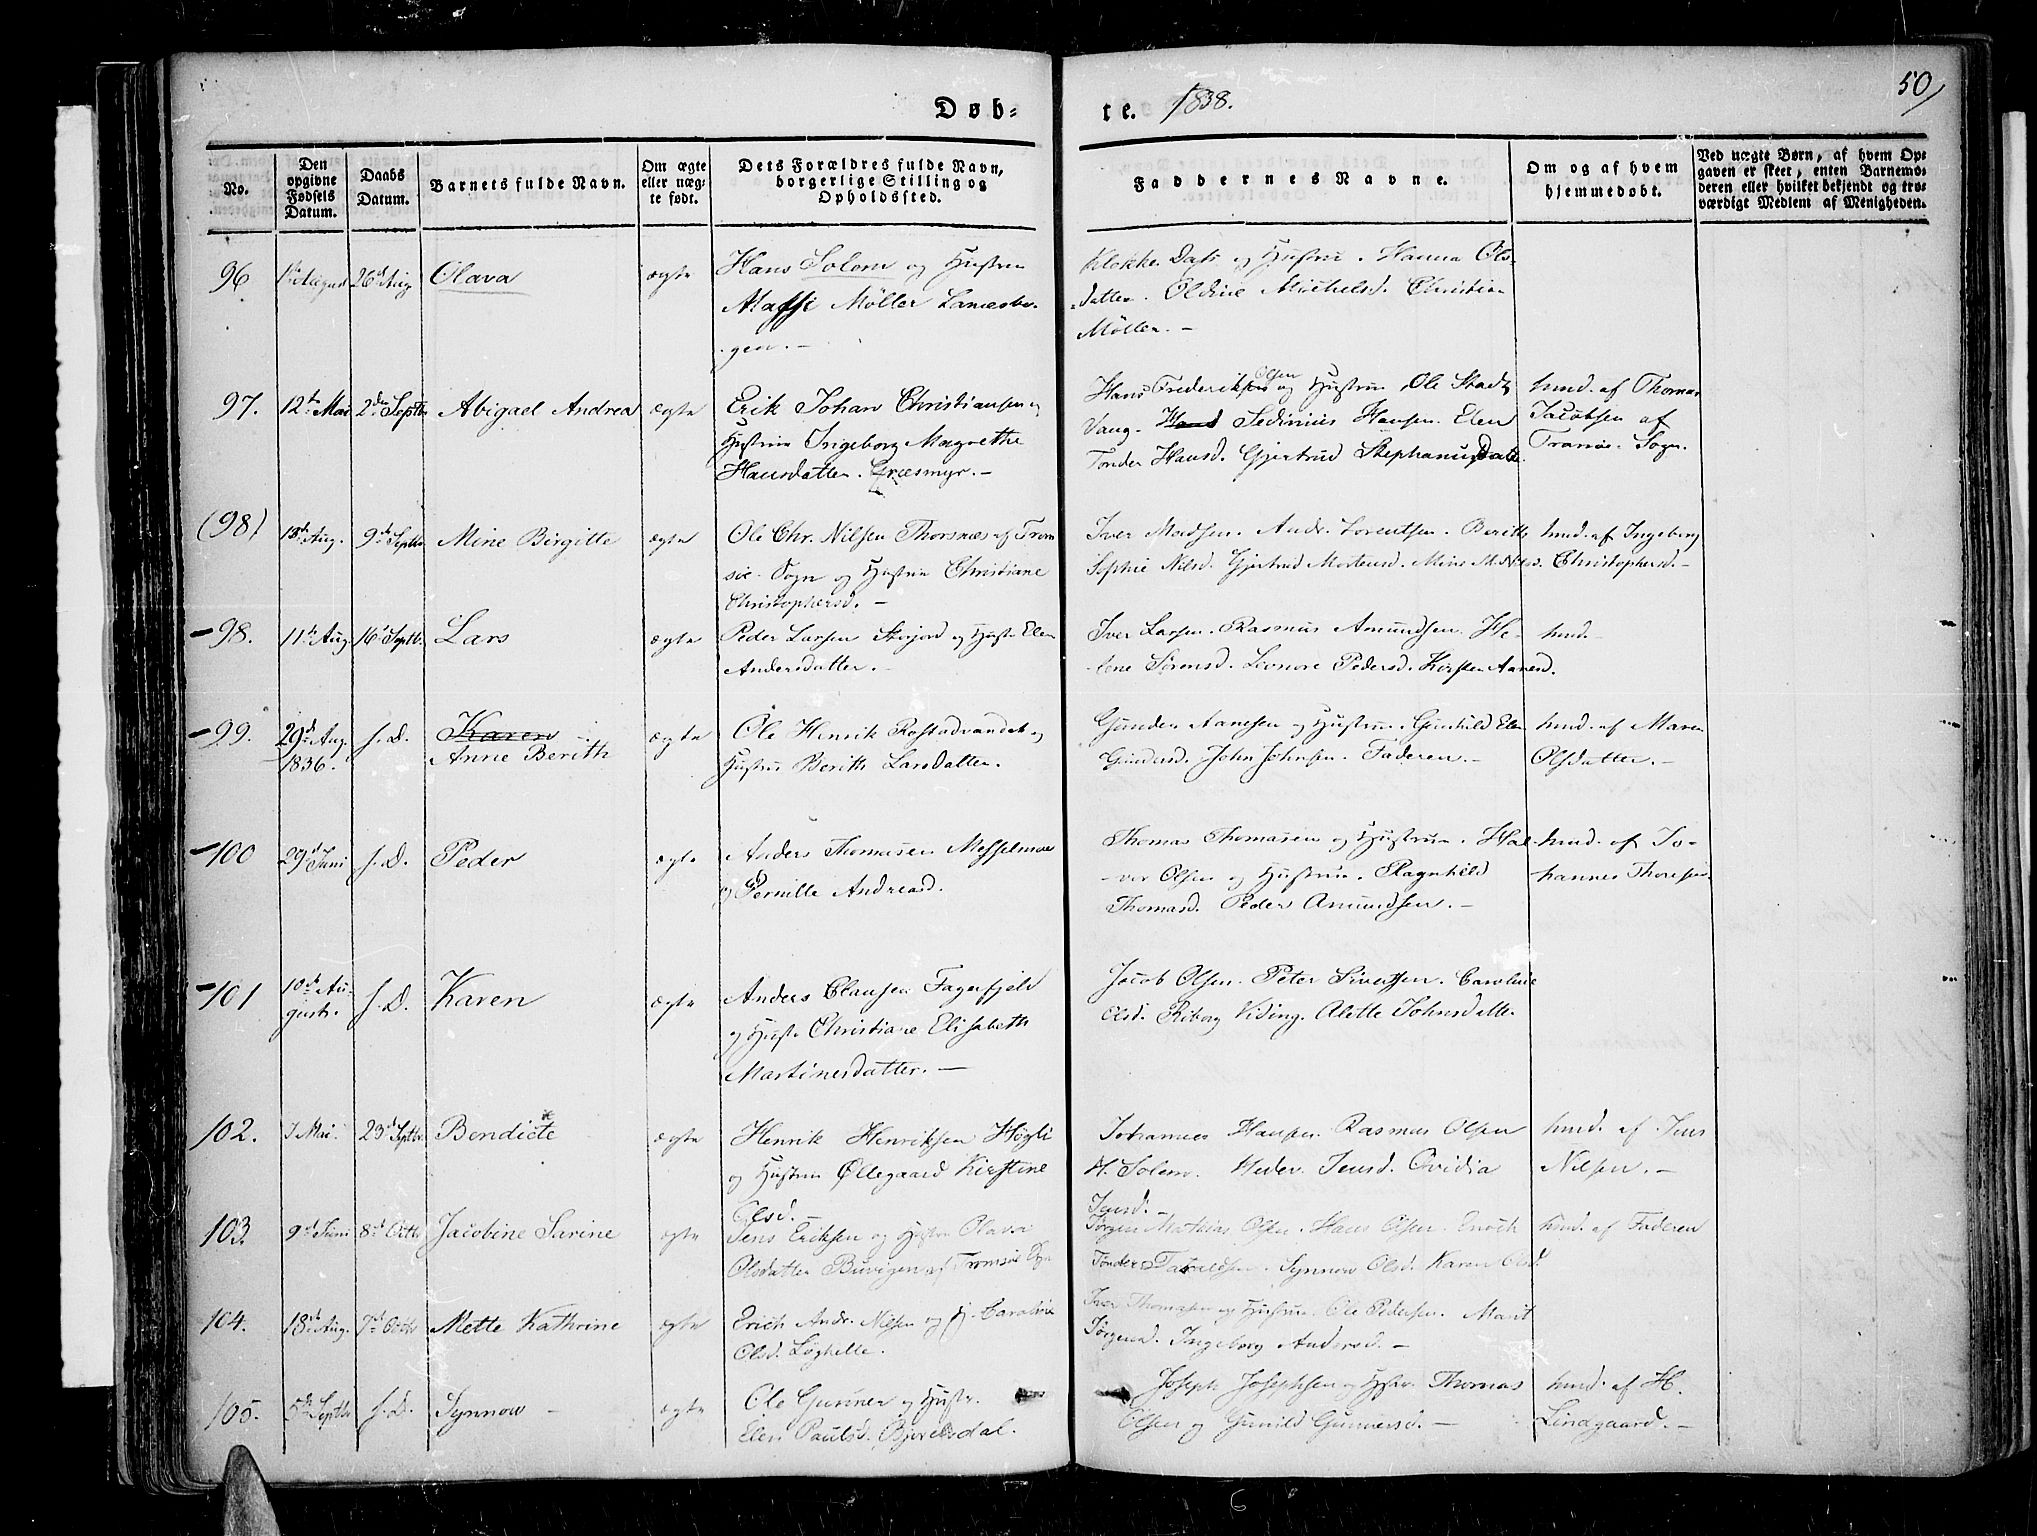 50/
Døb-
te. 1838.
No.
Den opgivne Fødsels Datum.
Daabs Datum.
Barnets fulde Navn.
Om ægte eller uægte født.
Dets Forældres fulde Navn, borgerlige Stilling og Opholdssted.
Faddernes Navne.
Om og af hvem hjemmedøbt.
Ved uægte Børn, af hvem Opgaven er skeet, enten Barnemoderen eller hvilket bekjendt og troværdigt Medlem af Menigheden.
96 26d Aug Olava ægte Hans Solem og Hustru
Massi Møller
gen. -
Klokker og Hustru. Hanna Ols-
datter. Oldine Michelsd. Christian
Møller. -
97. 12te Mai 2den Septbr Abigael Andrea ægte Erik Johan Christiansen og
Hustru Ingeborg Magrethe
Hansdatter. Græsmyr. -
Hans Frederiksen Olsen og Hustru, Ole Stads
Vang. Hans Sedinius Hansen. Elen
Tonder Hansd. Gjertrud Stephanusdatt.
hmd. af Thomas
Jacobsen af
Tranøe-Sogn.
(98) 18de Aug. 9de Septbr. Mine Birgitte ægte Ole Chr. Nilsen Thorsnæs af Trom
søe-Sogn og Hustru Christiane
Christophersd. -
Iver Madsen. Andr. Lorentsen. Berith
Sophie Nilsd. Gjertrud Mortensd. Mine M. Nilsd.
hmd. af Ingeborg
Christophersd. -
98. 11te Aug. 16d Septbr. Lars ægte Peder Larsen og Hust. Elen
Andersdatter. -
Iver Larsen. Rasmus Amundsen. He-
lene Sørensd. Leonore Pedersd. Kirsten Aanesd.
hmd. -
99. 29d Aug. 1836. s. D. Karen
Anne Berith ægte Ole Henrik Rostadvandet og
Hustru Berith Larsdatter.
Gunder Aanesen og Hustru. Gunhild Elen
Gundersd. John Johnsen. Faderen. -
hmd. af Maren
Olsdatter. -
100 27d Juni s. D. Peder ægte Anders Thomasen Messelmoe
og Pernille Andreasd.
Thomas Thomasen og Hustru. Hal-
vor Olsen og Hustru. Ragnhild
Thomasd. Peder Amundsen. -
hmd. af Jo-
hannes Thoresen.
101 10de Au-
gust. s. D. Karen ægte Anders Clausen Fagerfjeld
og Hust. Christiane Elisabeth
Martinesdatter. -
Jacob Olsen. Peter Sivertsen. Caroline
Olsd. Riborg Kiding. Alette Johnsdatte.
102. 7 Mai. 23d Septbr. Bendicte ægte Henrik Henriksen Høgli
og Hustru Øllegaard Kirstine
Olsd. -
Johannes Hansen. Rasmus Olsen
H. Solem. Jensd. Ovidia
Jensd. -
hmd. af Jens
Nilsen. -
103. 9d Juni 8d Octbr Jacobine Sarine ægte Jens Eriksen og Hustru Olava
Olsdatter Buvigen af Tromsøe Sogn
Jørgen Mathias Olsen. Hans Olsen. Enoch
Tønder Synnow Olsd. Karen Olsd
hmd. af Faderen
104. 18d Aug. 7d Octbr Mette Kathrine ægte Erich Andr. Nilsen og H. Caroline
Olsd. Løghelle.
Iver Thomasen og Hustru. Ole Pedersen. Marit
Jørgensd. Ingeborg Andersd. -
105. 5te Septbr s. D. Synnow - ægte Ole Gunner og Hustr.
Elen Paulsd. Bjorelsdal.
Joseph Josephsen og Hstr. Thomas
Olsen og Gunild Gunnersd. -
hmd. af H.
Lindgaard. -